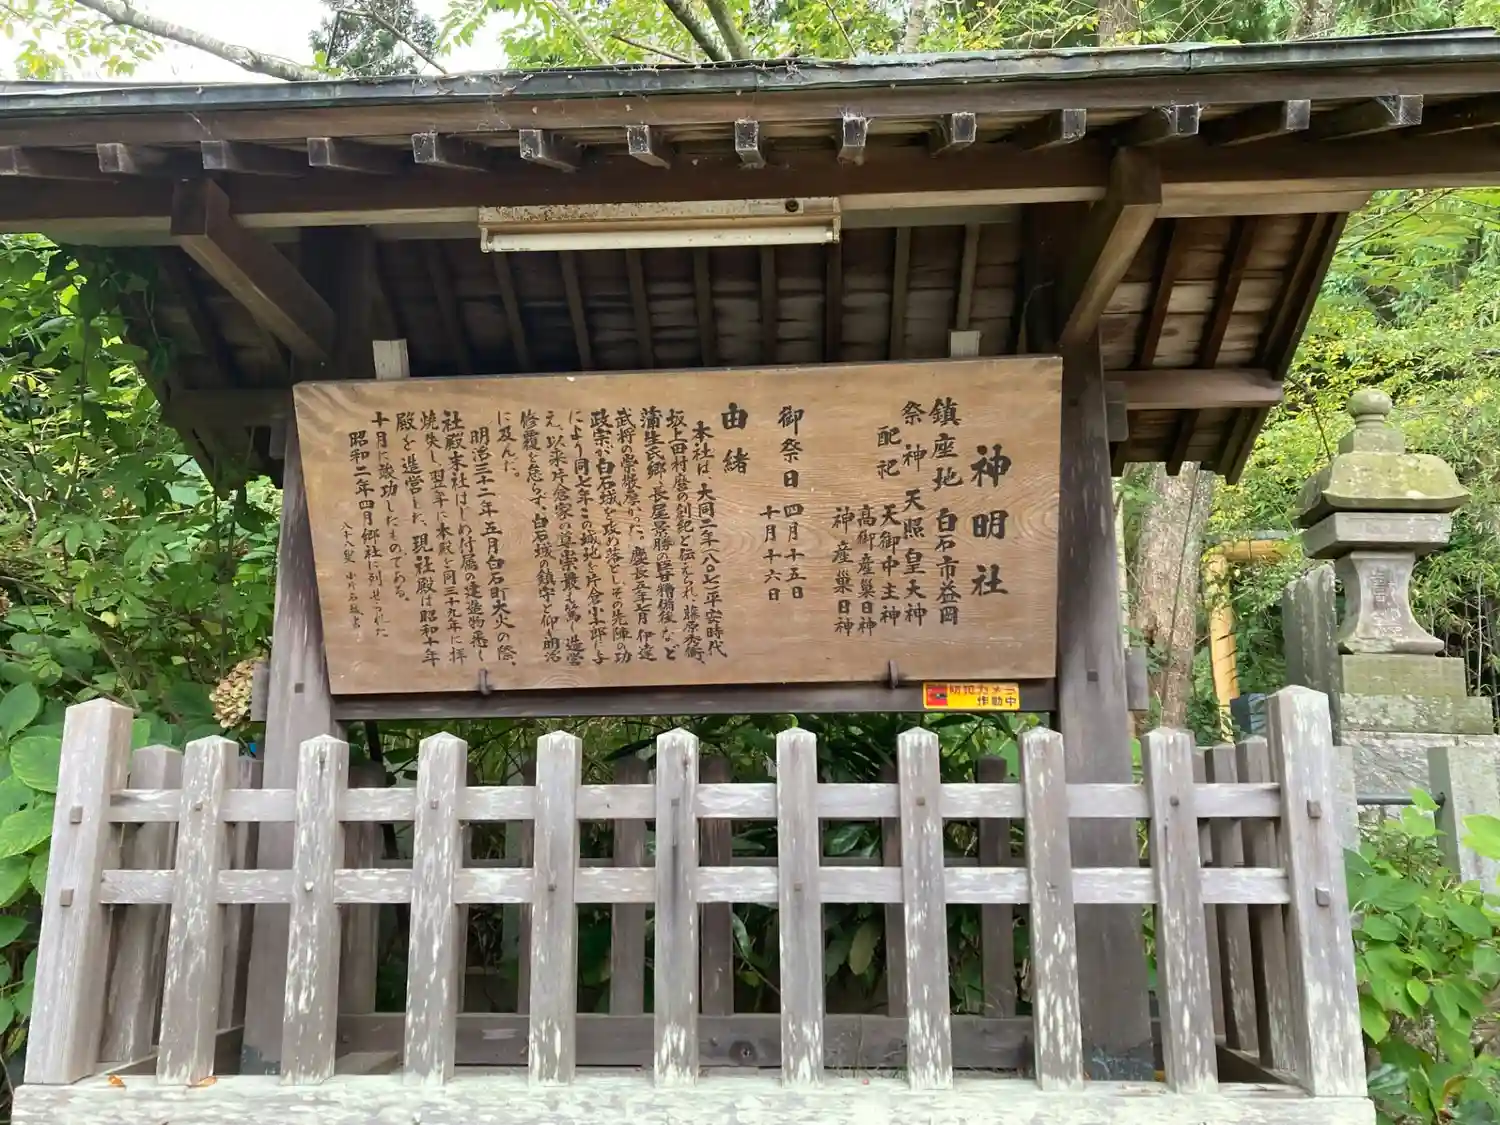 神明社
鎮座地 白石市益岡
祭神 天照皇大神
配祀 天御中主神
高御産巣日神
神産巣日神
御祭日 四月十五日
十月十六日
由緒
本社は、大同二年(八〇七)平安時代
坂上田村麿の創祀と伝えられ、藤原秀衡、
蒲生氏郷、長尾景勝の臣甘糟備後などの
武将の崇敬厚かった。慶長五年七月伊達
政宗が白石城を攻め落としその先陣の功
により同七年この城地を片倉小十郎に与
え、以来片倉家の尊崇最も篤く造営
修覆を怠らず、白石城の鎮守と仰ぎ明治
に及んだ。
明治三十二年五月白石町大火の際、
社殿末社はじめ付属の建造物悉く
焼失し翌年に本殿を同三十九年に拝
殿を造営した。現社殿は昭和十年
十月に竣功したものである。
昭和二年四月郷社に列せられた
防犯カメラ
作動中